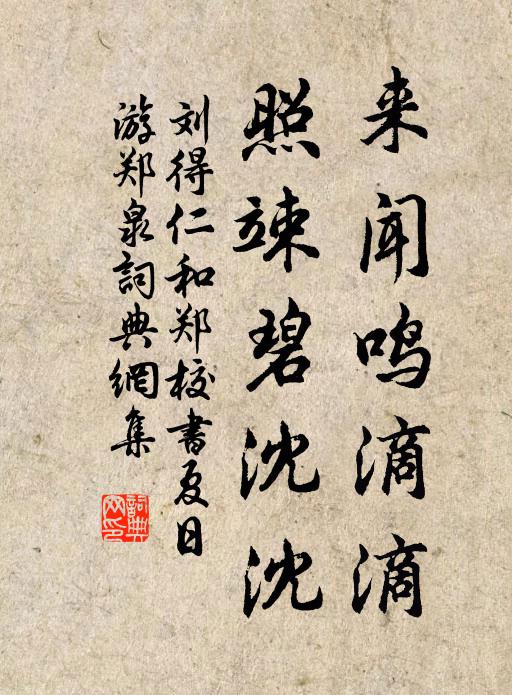 来闻鸣滴滴
照竦碧沈沈
刘得仁和郑校书夏日
游郑泉詞典網集
詞典网印